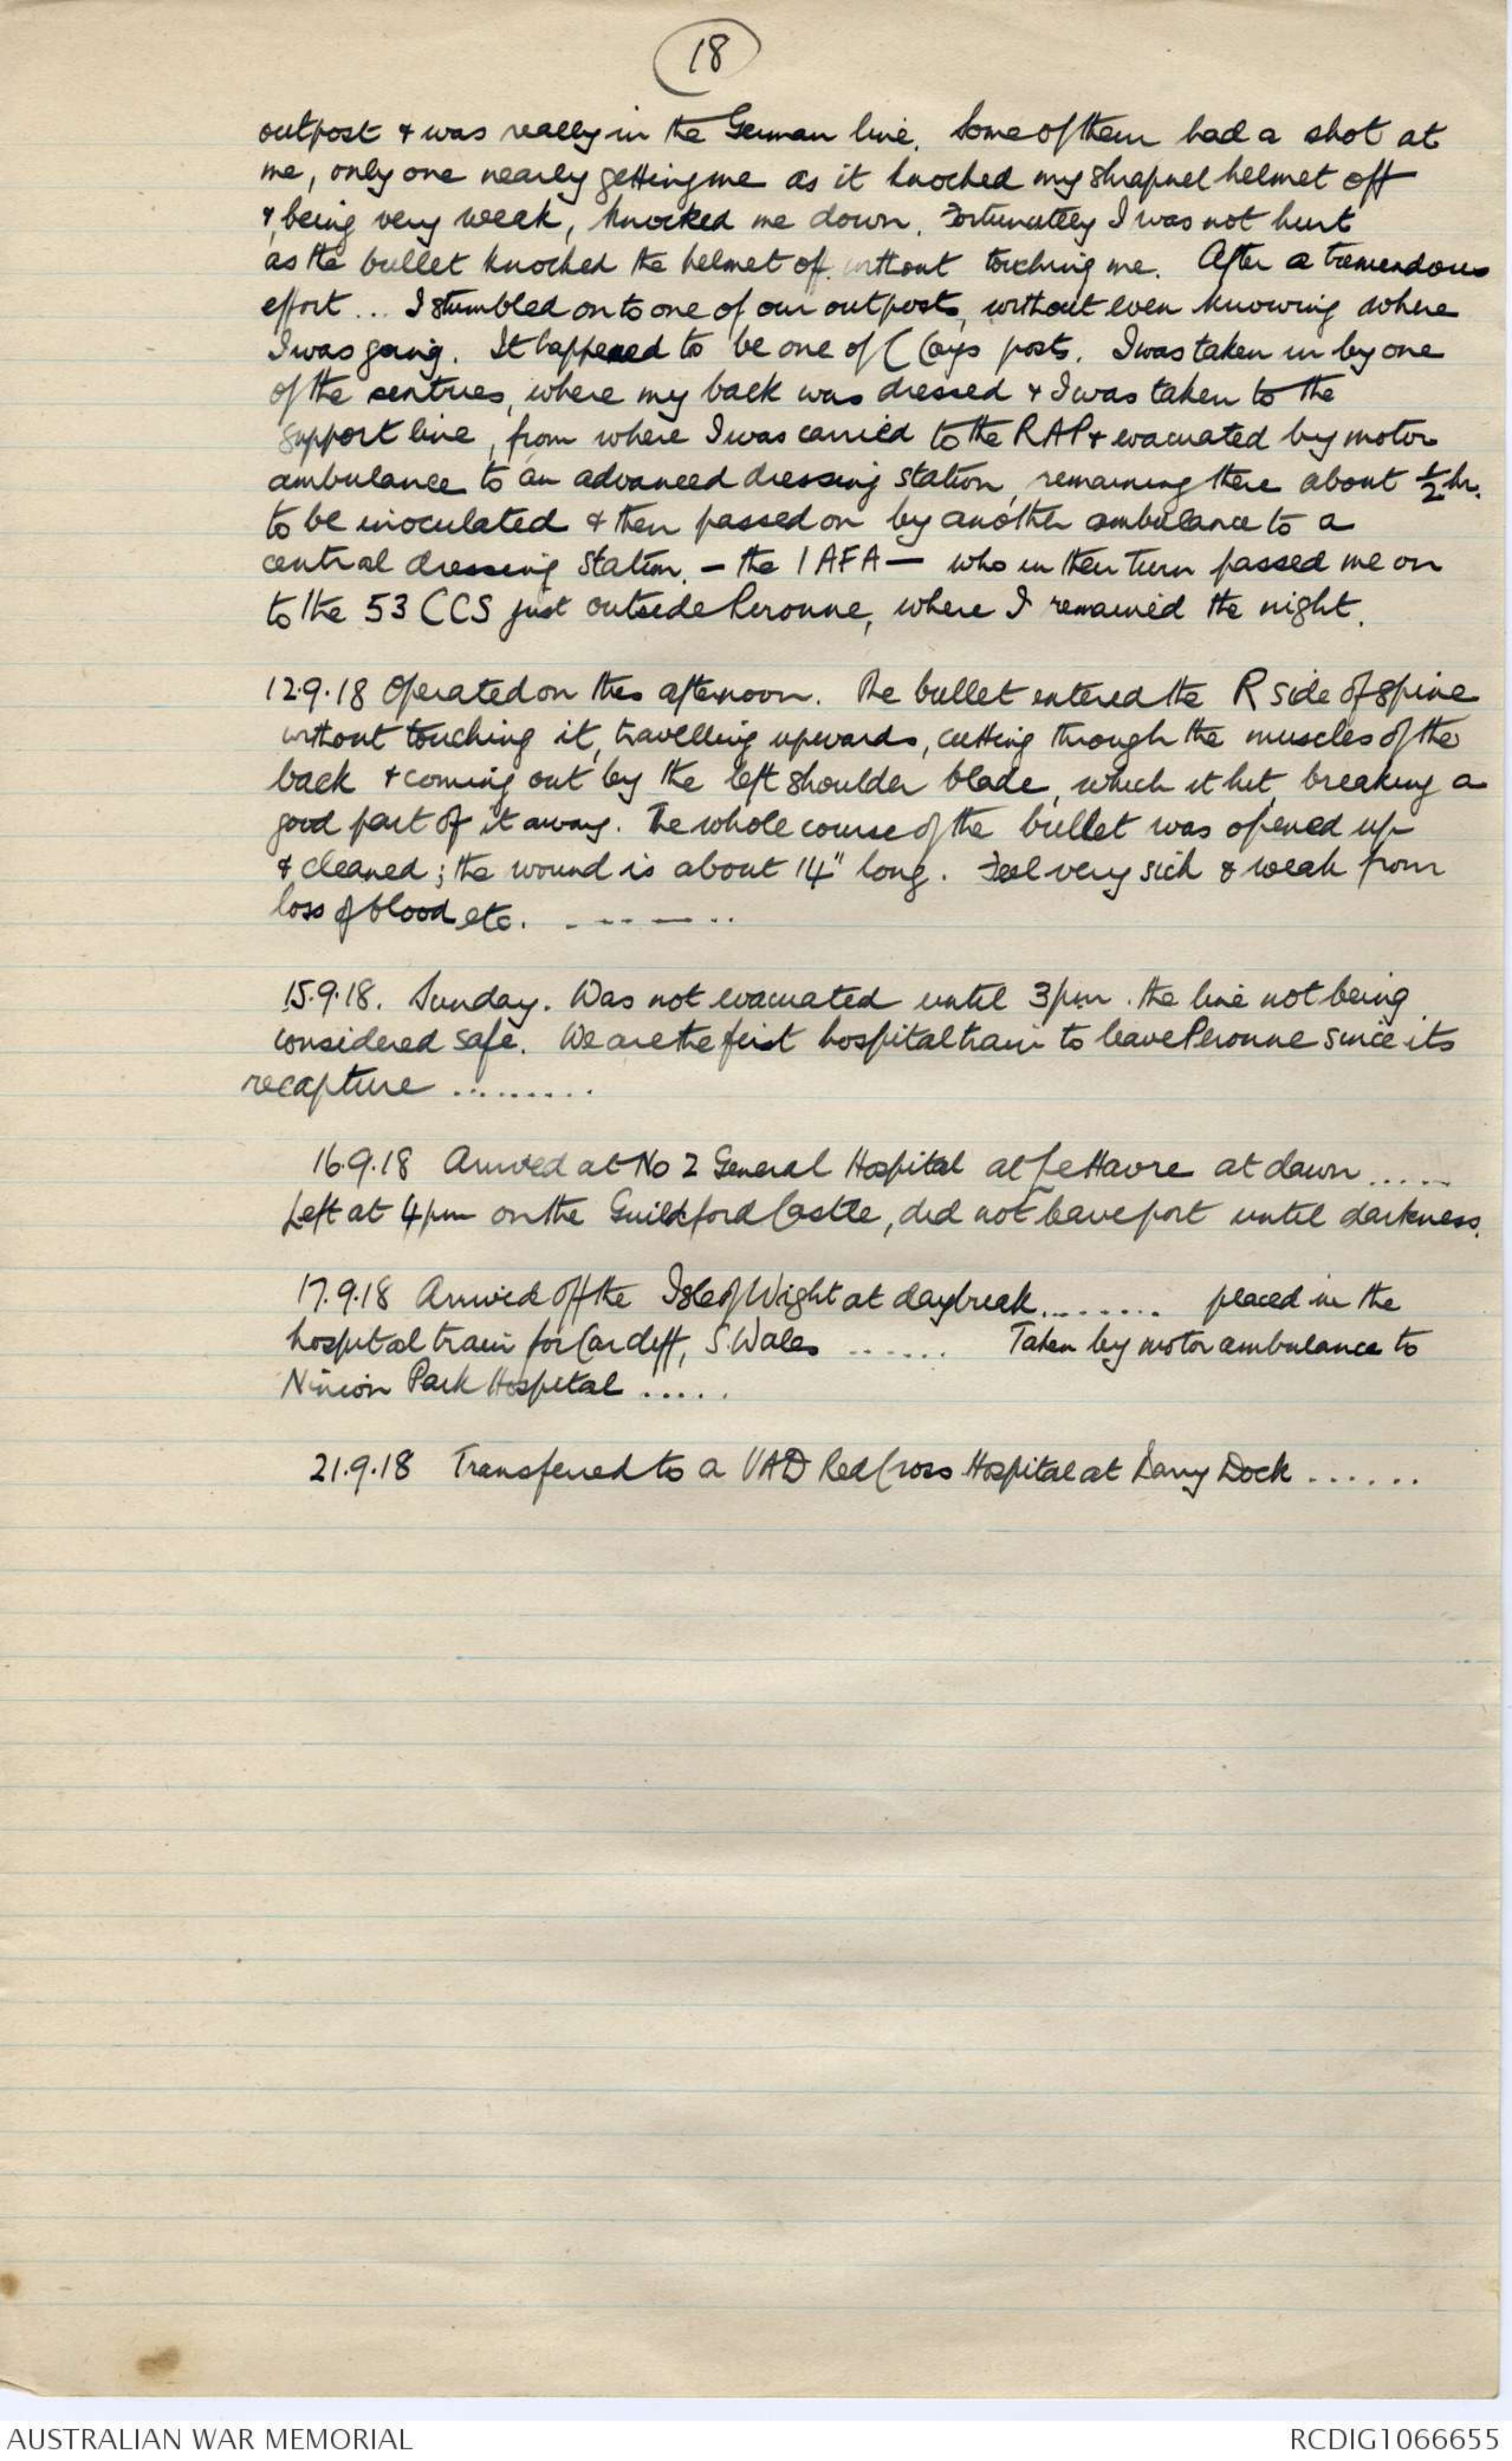 18
outpost & was really in the German line. Some of them had a shot at
me, only one nearly getting me as it knocked my shrapnel helmet off
& being very weak, knocked me down. Fortunatley I was not hurt
as the bullet knocked the helmet off without touching me. After a tremendous
effort ... I stumbled on to one of our outposts, without even knowing where
I was going. It happened to be one of C Coys posts. I was taken in by one
of the sentries, where my back was dressed & I was taken to the
support line, from where I was carried to the RAP & evacuated by motor
ambulance to an advanced dressing station, remaining there about ½ hr.
to be inoculated & then passed on by another ambulance to a
central dressing station. - the 1 AFA - who in their turn passed me on
to the 53 CCS just outside Peronne, where I remained the night.
12.9.18 Operated on this afternoon. The bullet entered the R side of spine
without touching it, travelling upwards, cutting through the muscles of the
back & coming out by the left shoulder blade, which it hit, breaking a
good part of it away. The whole course of the bullet was opened up
& cleaned; the wound is about 14" long. Feel very sick & weak from
loss of blood etc. . - - - - ..
15.9.18. Sunday. Was not evacuated until 3pm. the line not being
considered safe. We are the first hospital train to leave Peronne since its
recapture .........
16.9.18 Arrived at No 2 General Hospital at Le Havre at dawn .....
Left at 4pm on the Guildford Castle, did not leave port until darkness.
17.9.18 Arrived off the Isle of Wight at daybreak ........ placed in the
hospital train for Cardiff, S. Wales ...... Taken by motor ambulance to
Ninion Park Hospital .....
21.9.18 Transferred to a VAD Red Cross Hospital at Barry Dock ......
AUSTRALIAN WAR MEMORIAL
RCDIG1066655